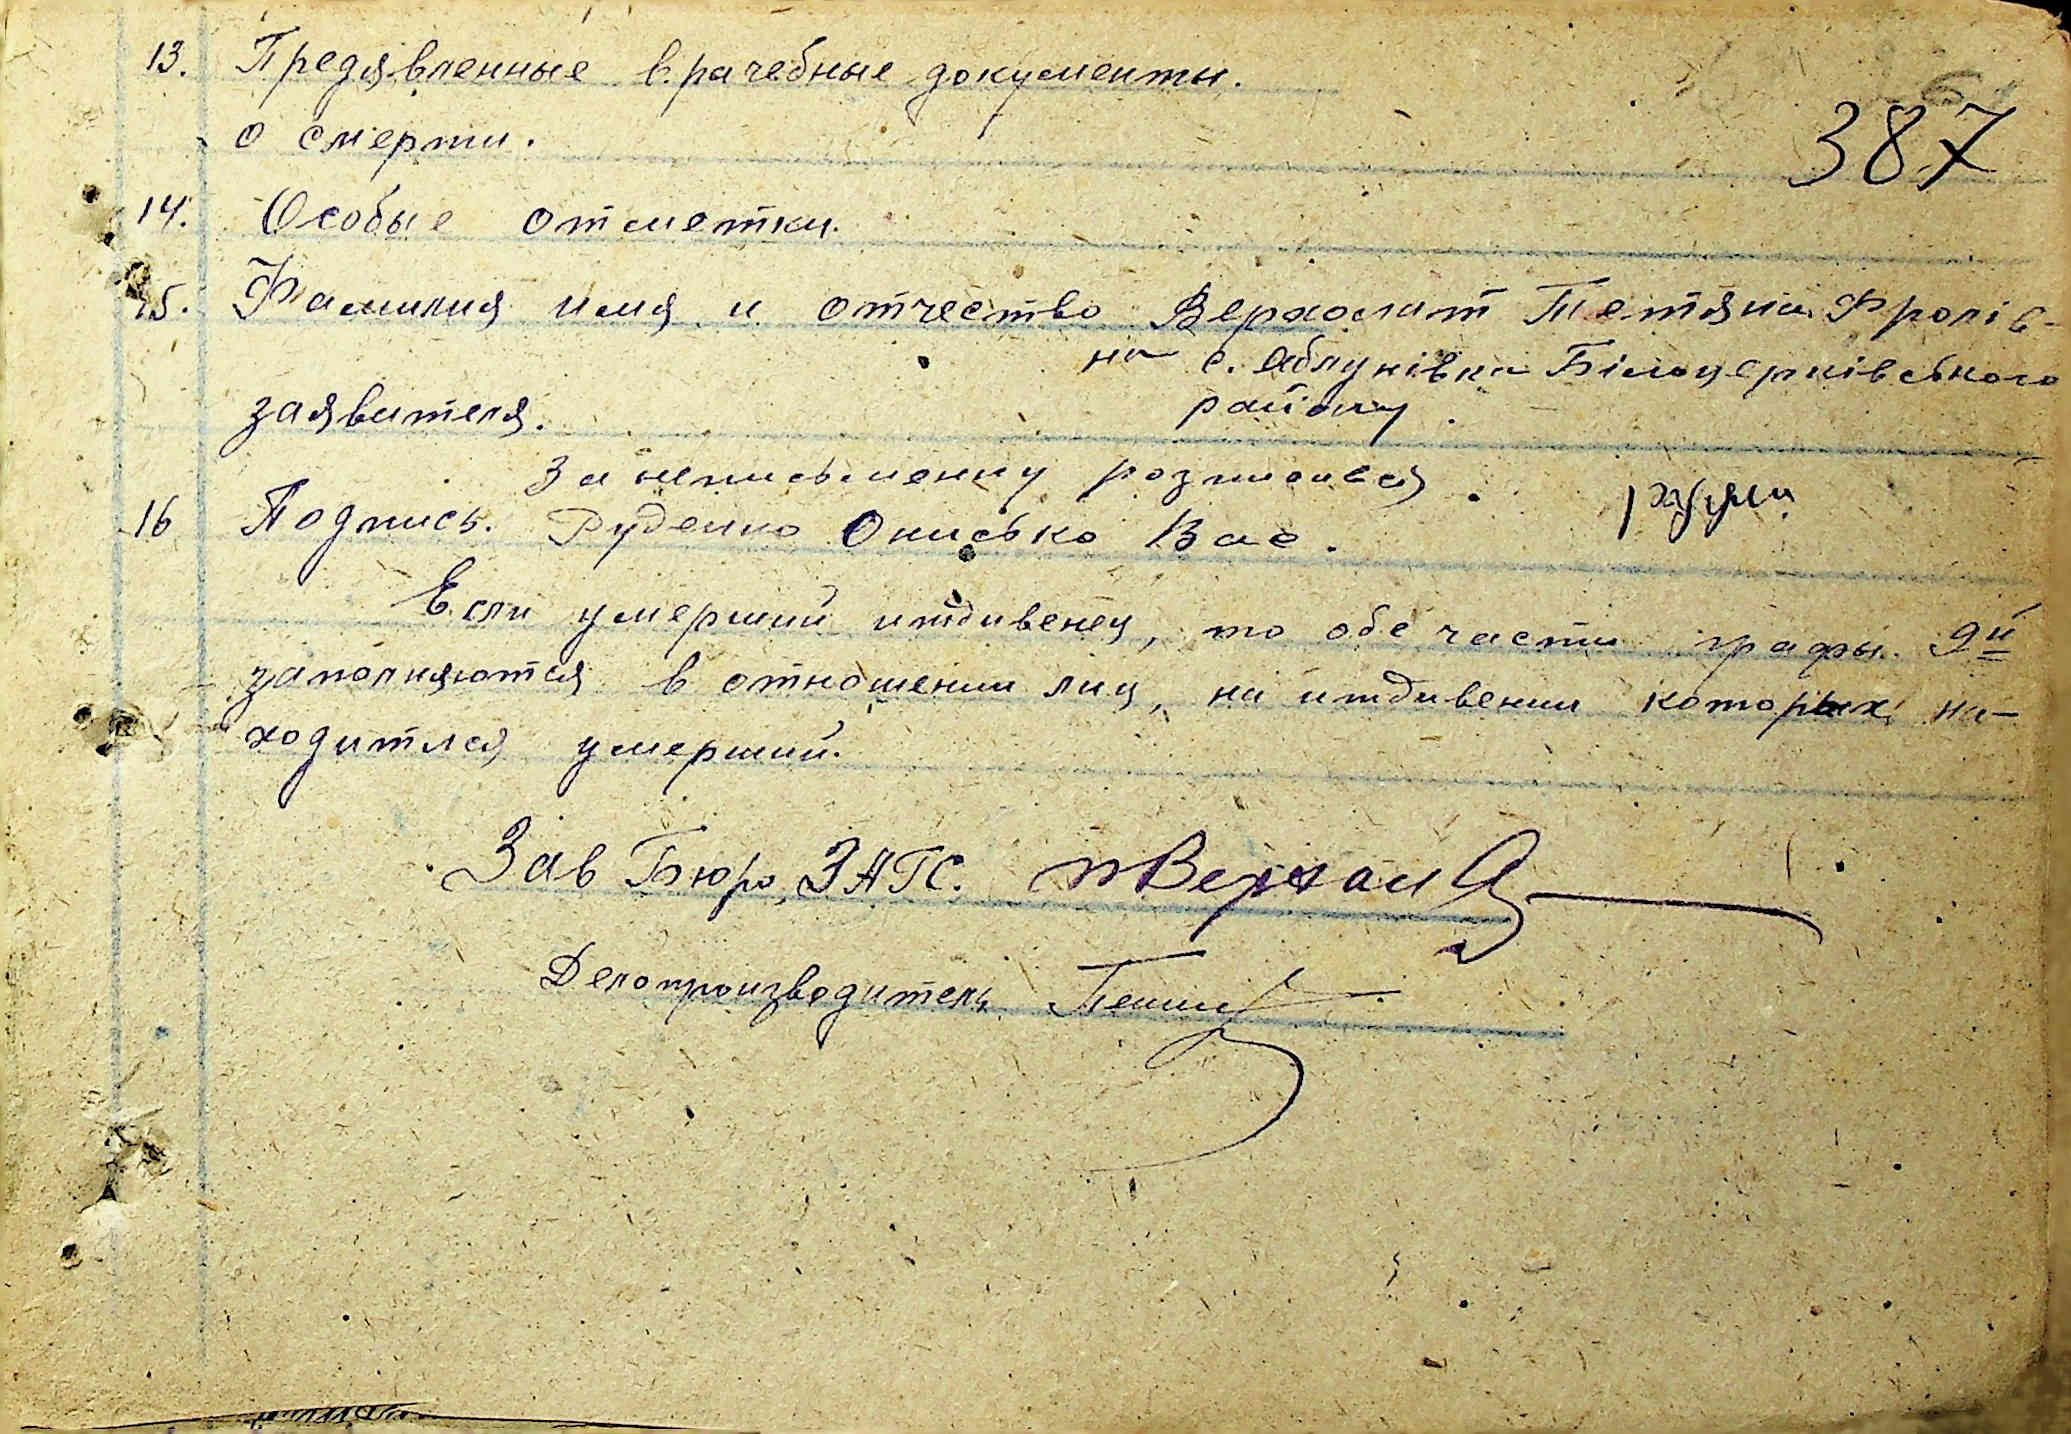 13. Предявленные врачебные документы.
387
о смерти.
14. Особые отметки.
15. Фамилия имя и отчество Верхолит Тетяна Фролів-
на с. Яблунівка Білоцерківського
заявителя. району.
За неписьменну розписався.
16 Подпись. Руденко Онисько Вас.
Если умерший иждивенец, то обе части графы 9й
заполняются в отношении лиц, на иждивении которых на-
ходитлся умерший.
Зав Бюро ЗАГС.
Делопроизводитель